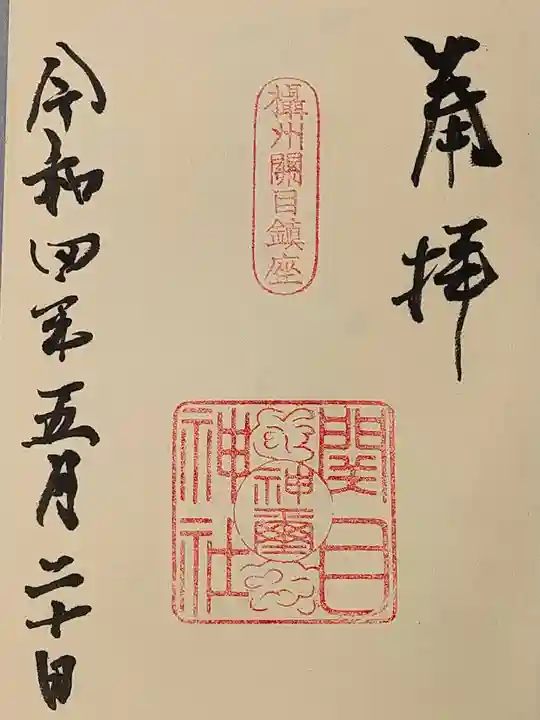 奉拝
攝州關目鎮座
関目
神社
神璽
令和四年五月二十日